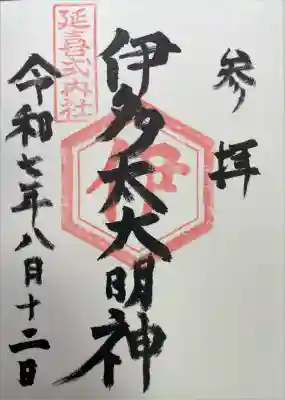 参拝
伊多太大明神
伊
延喜式内社
令和七年八月十二日